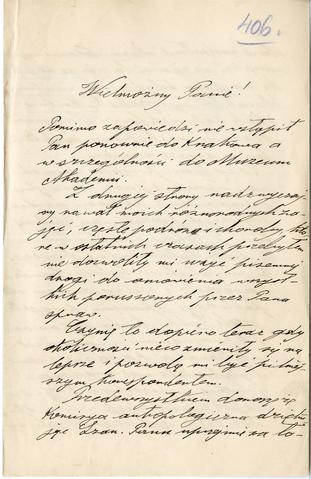 406.
Wielmożny Panie!
Pomimo zapowiedzi nie wstąpił
Pan ponownie do Krakowa a
w szczególności do Muzeum
Akademii.
Z drugiej strony nadzwyczaj-
ny nawał moich różnorodnych za-
jęć, częste podróże i choroby, któ-
re w ostatnich czasach przebyłem
nie dozwoliły mi użyć pisemnej
drogi do omówienia wszyst-
kich poruszonych przez Pana
spraw.
Czynię to dopiero teraz gdy
okoliczności nieco zmieniły się na
lepsze i pozwolą mi być pilniej-
szym korespondentem.
Przedewszystkiem donoszę iż
Komisya antropologiczna dzięku-
je Szan. Panu uprzejmie za ła-